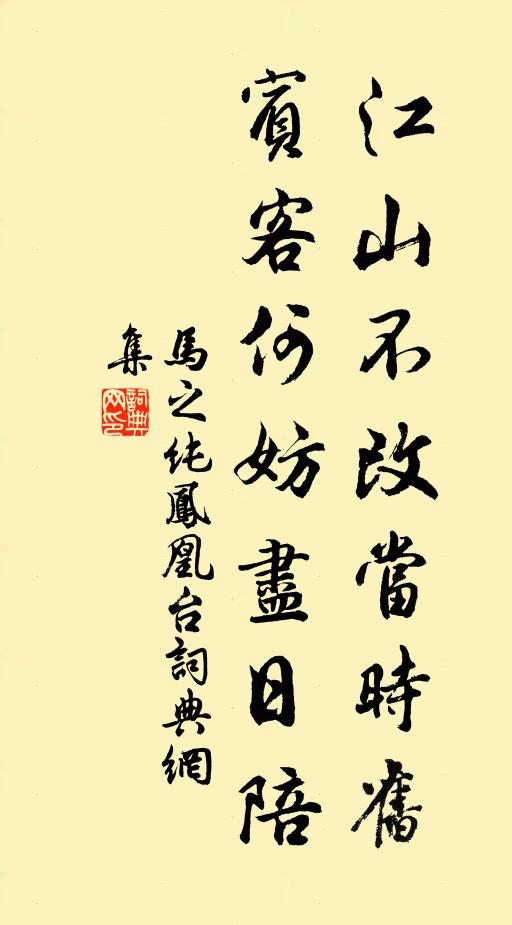 江山不改當時舊
賓客何妨盡日陪
馬之純鳳凰台詞典網
集
詞典
网印